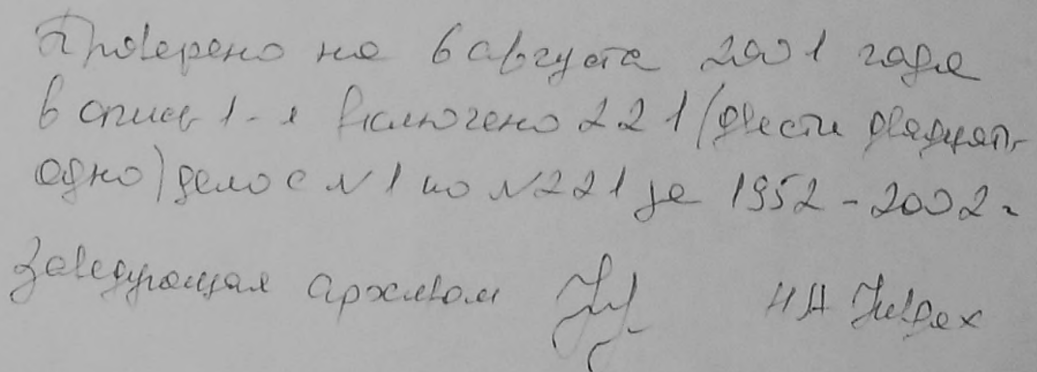 Проверено на 6 августа 2001 года
в опись 1-л включено 221 (двести двадцать
одно) дело с №1 по №221 за 1952-2002г
Заведующая архивом Н А